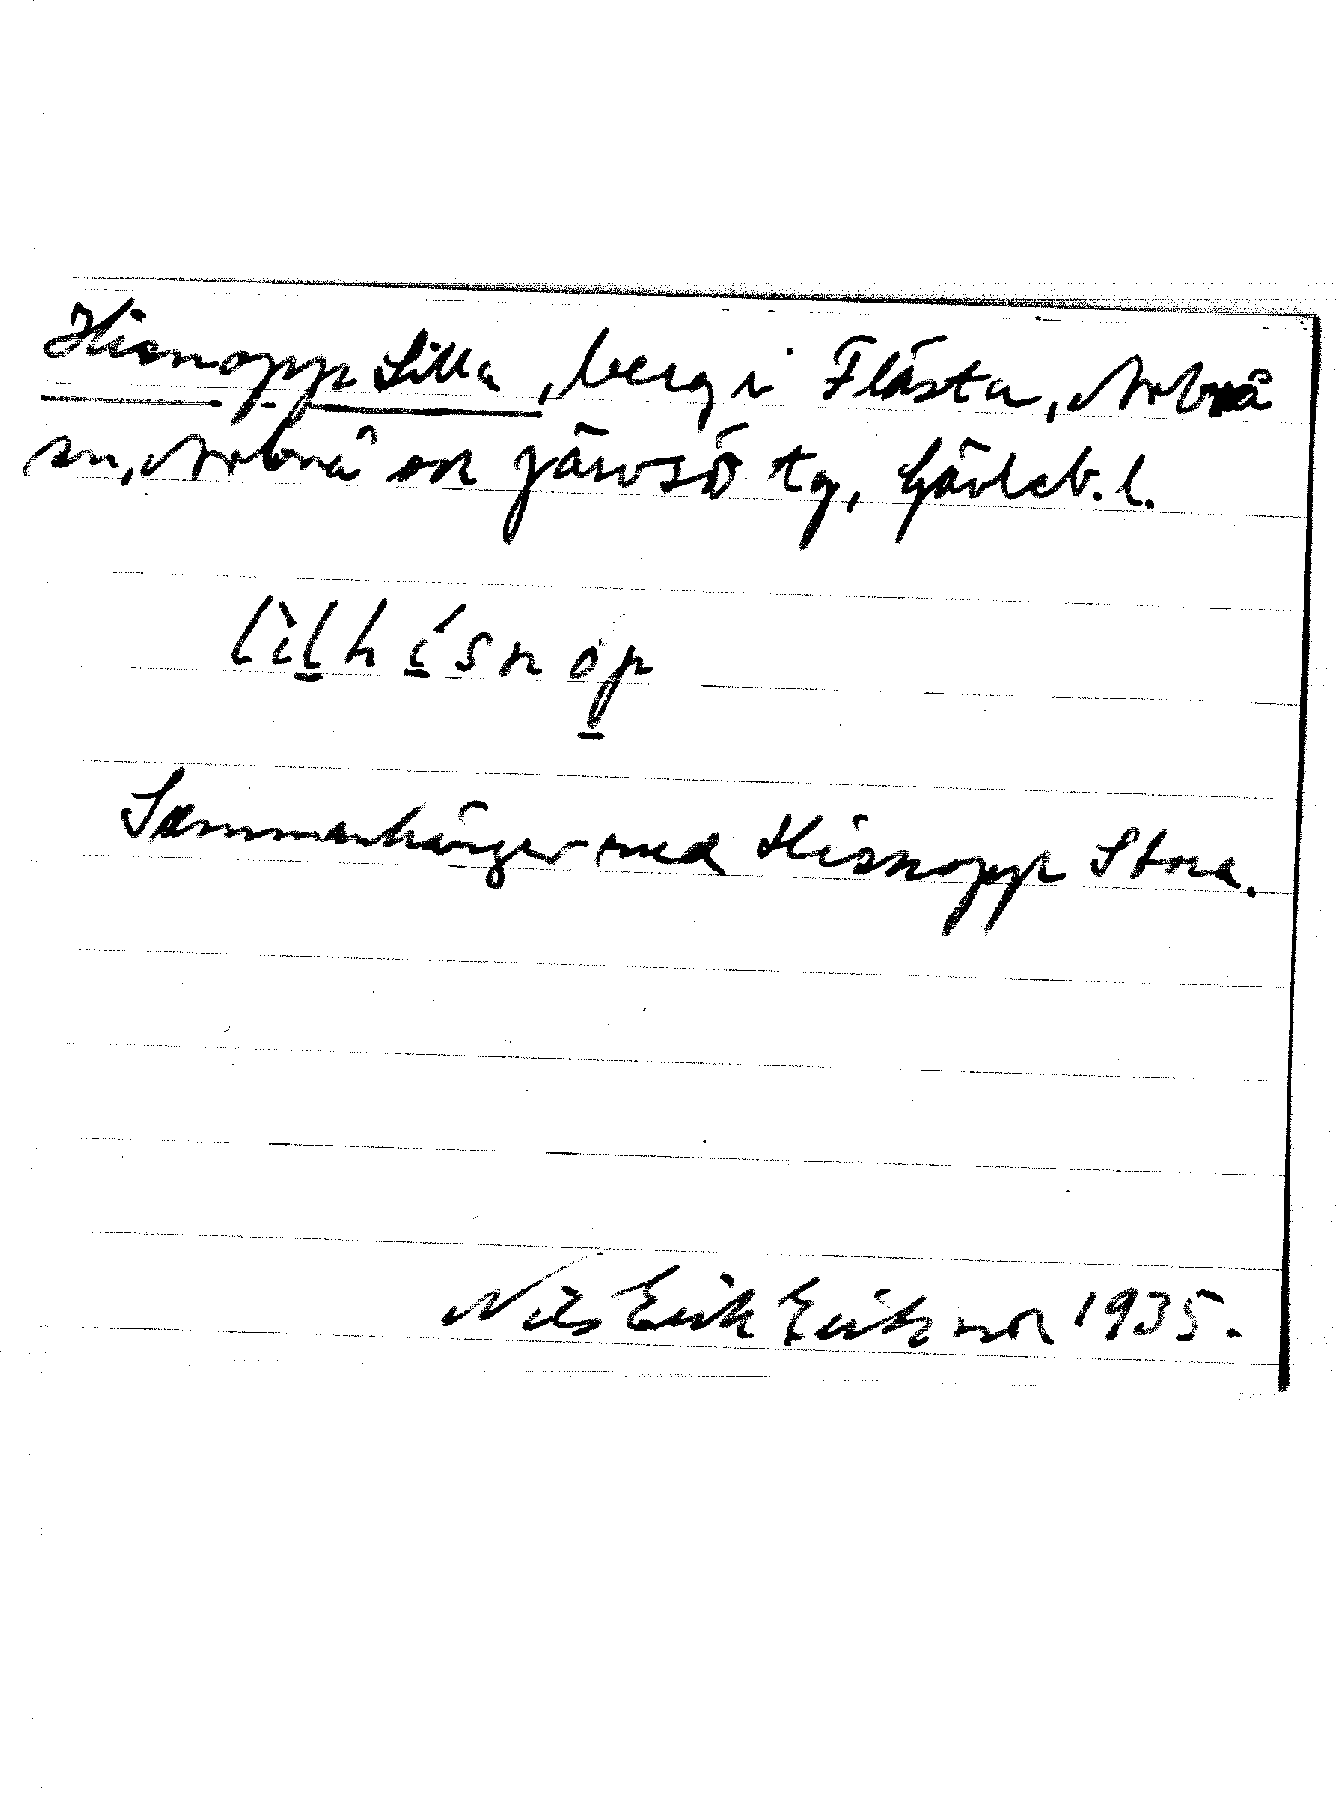 Hisnopp Lilla, berg i Flästa, Arbrå
sn, Arbrå och Järvsö tg, Gävleb. l.
lìlhísnòp
Sammanhänger med Hisnopp Stora.
Nils Erik Eriksson 1935.